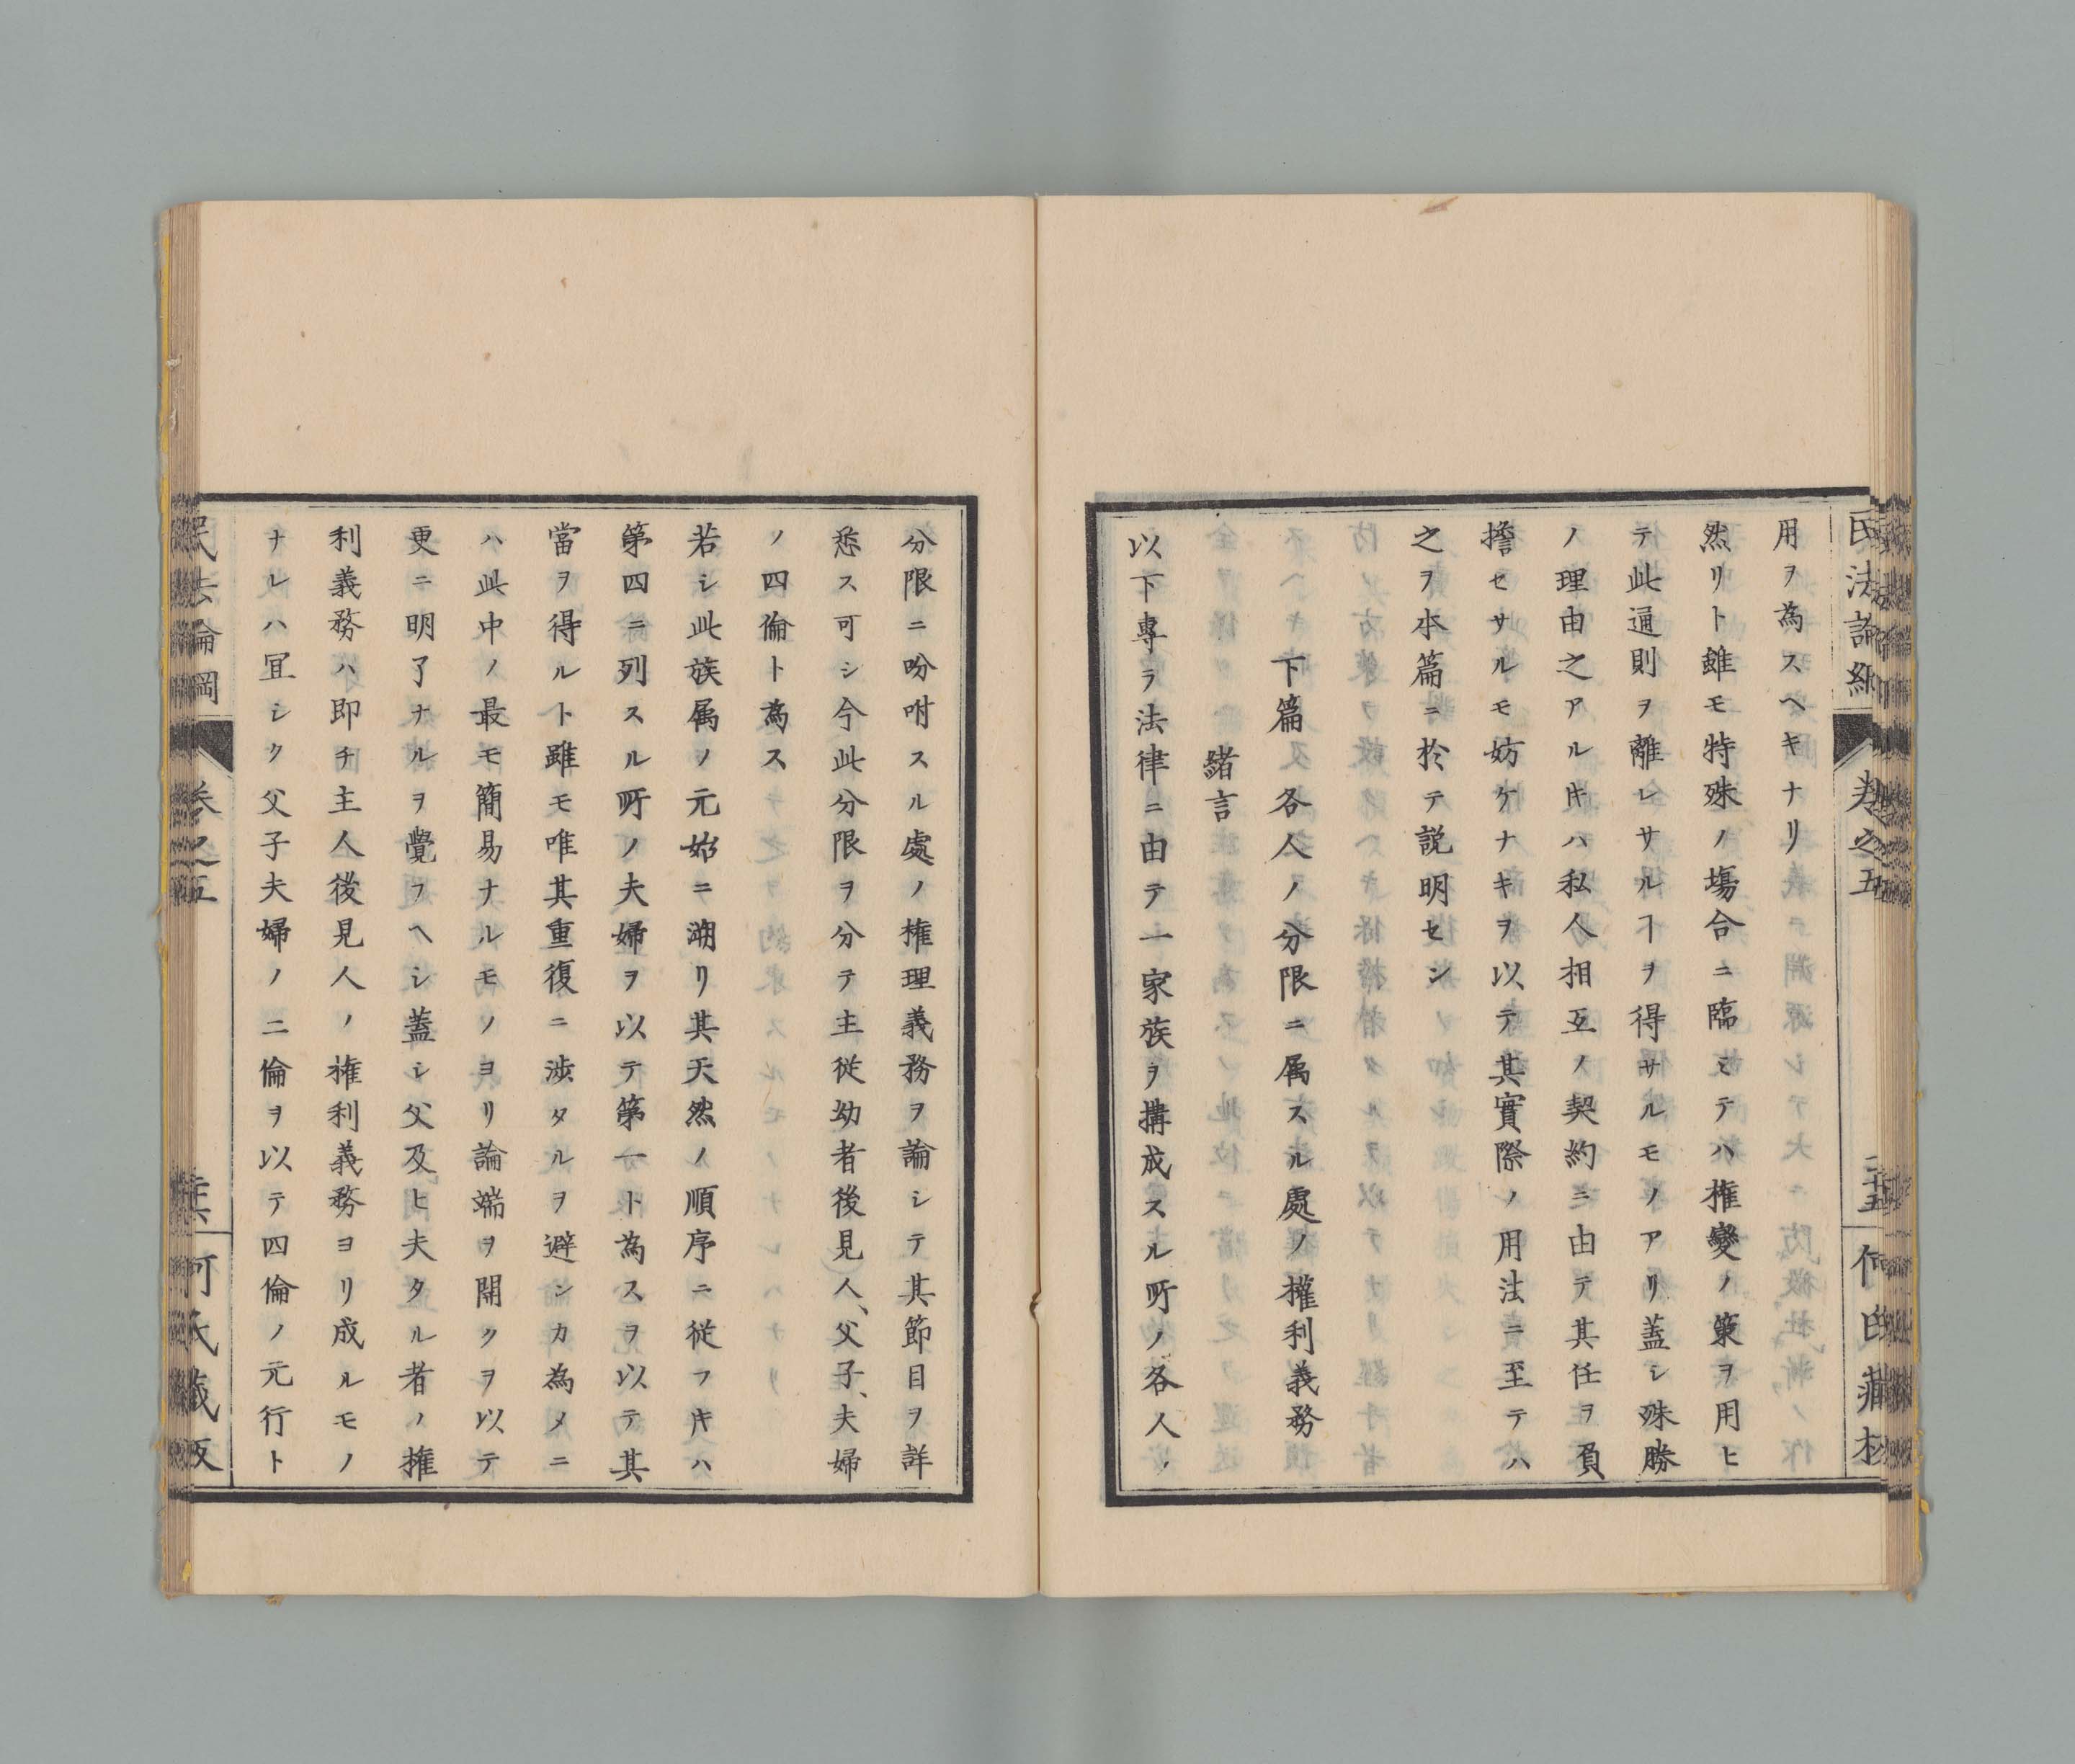 民法論綱
卷之五
二十五
何氏藏板
用ヲ為スヘキナリ
然リト雖モ特殊ノ塲合ニ臨ミテハ権變ノ策ヲ用ヒ
テ此通則ヲ離レサルヿヲ得サルモノアリ蓋シ殊勝
ノ理由之アルキハ私人相互ノ契約ニ由テ其任ヲ負
擔セサルモ妨ケナキヲ以テ其實際ノ用法ニ至テハ
之ヲ本篇ニ於テ説明セン
下篇 各人ノ分限ニ属スル處ノ權利義務
緒言
以下專ラ法律ニ由テ一家族ヲ搆成スル所ノ各人ノ
分限ニ吩咐スル處ノ権理義務ヲ論シテ其節目ヲ詳
悉ス可シ今此分限ヲ分テ主従幼者後見人、父子、夫婦
ノ四倫ト為ス
若シ此族属ノ元始ニ溯リ其天然ノ順序ニ従フキハ
第四ニ列スル所ノ夫婦ヲ以テ第一ト為スヲ以テ其
當ヲ得ルト雖モ唯其重復ニ渉タルヲ避ンカ為メニ
ハ此中ノ最モ簡易ナルモノヨリ論端ヲ開クヲ以テ
更ニ明了ナルヲ覺フヘシ蓋シ父及ヒ夫タル者ノ権
利義務ハ即チ主人後見人ノ権利義務ヨリ成ルモノ
ナレハ冝シク父子夫婦ノ二倫ヲ以テ四倫ノ元行ト
民法論綱
卷之五
何氏藏板